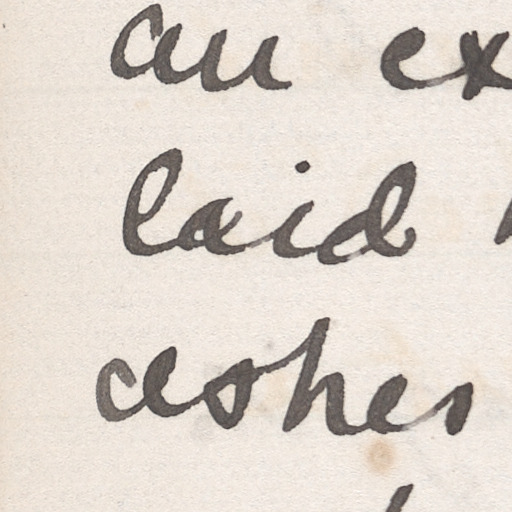 an ex
laid
ashes